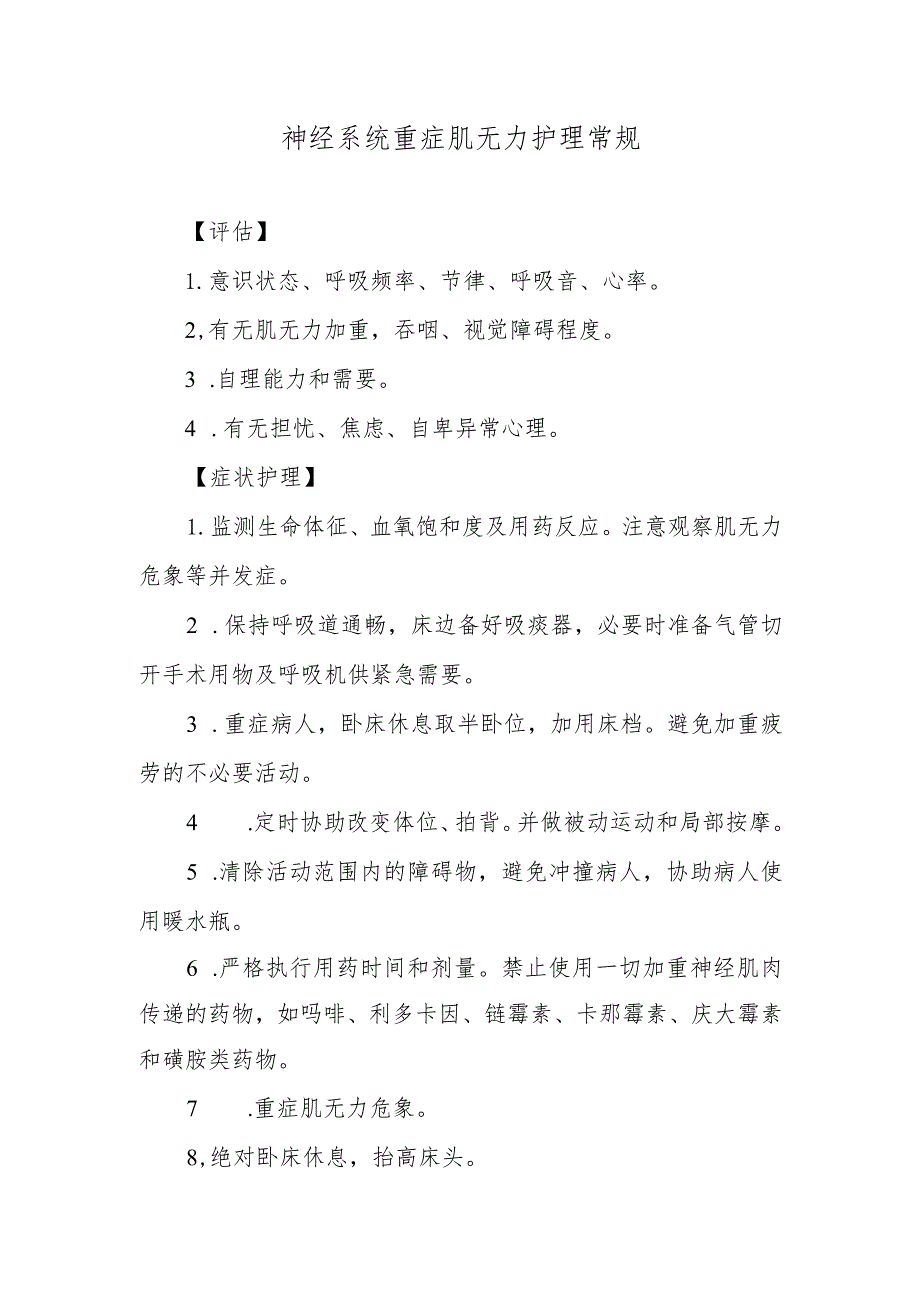 神经系统重症肌无力护理常规
【评估】
1. 意识状态、呼吸频率、节律、呼吸音、心率。
2,有无肌无力加重，吞咽、视觉障碍程度。
3 .自理能力和需要。
4 .有无担忧、焦虑、自卑异常心理。
【症状护理】
1. 监测生命体征、血氧饱和度及用药反应。注意观察肌无力
危象等并发症。
2 .保持呼吸道通畅，床边备好吸痰器，必要时准备气管切
开手术用物及呼吸机供紧急需要。
3 .重症病人，卧床休息取半卧位，加用床档。避免加重疲
劳的不必要活动。
4 .定时协助改变体位、拍背。并做被动运动和局部按摩。
5 .清除活动范围内的障碍物，避免冲撞病人，协助病人使
用暖水瓶。
6 .严格执行用药时间和剂量。禁止使用一切加重神经肌肉
传递的药物，如吗啡、利多卡因、链霉素、卡那霉素、庆大霉素
和磺胺类药物。
7 .重症肌无力危象。
8,绝对卧床休息，抬高床头。